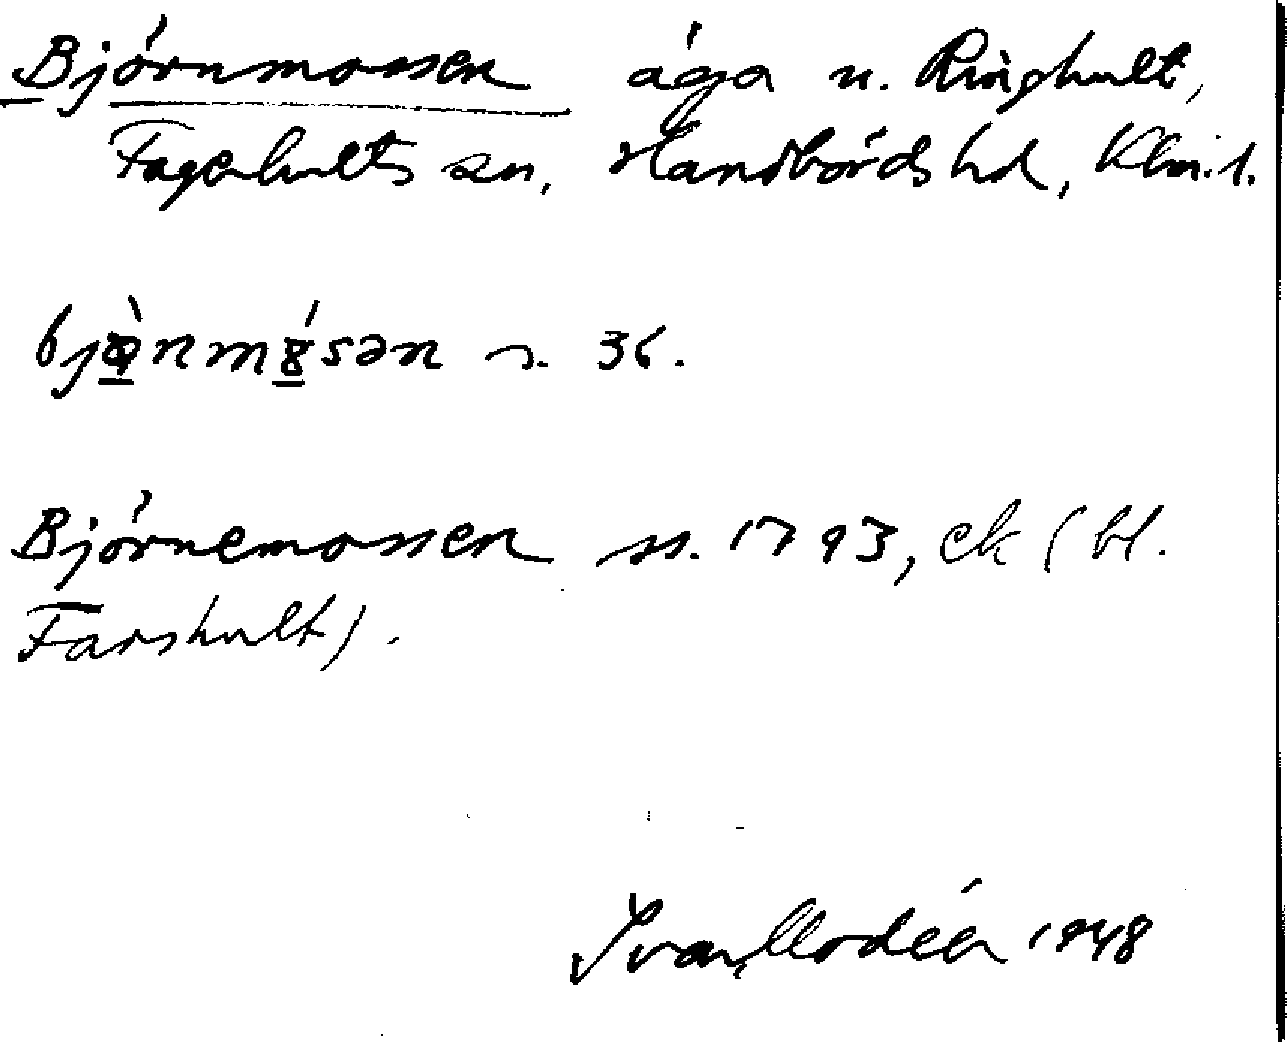 Björnmossen äga n. Ringhult,
Fagerhults sn, Handbörds hd, Klm. l.
s. 36.
Björnemossen ss. 1793, ek (bl.
Farshult).
Ivar Modéer 1948